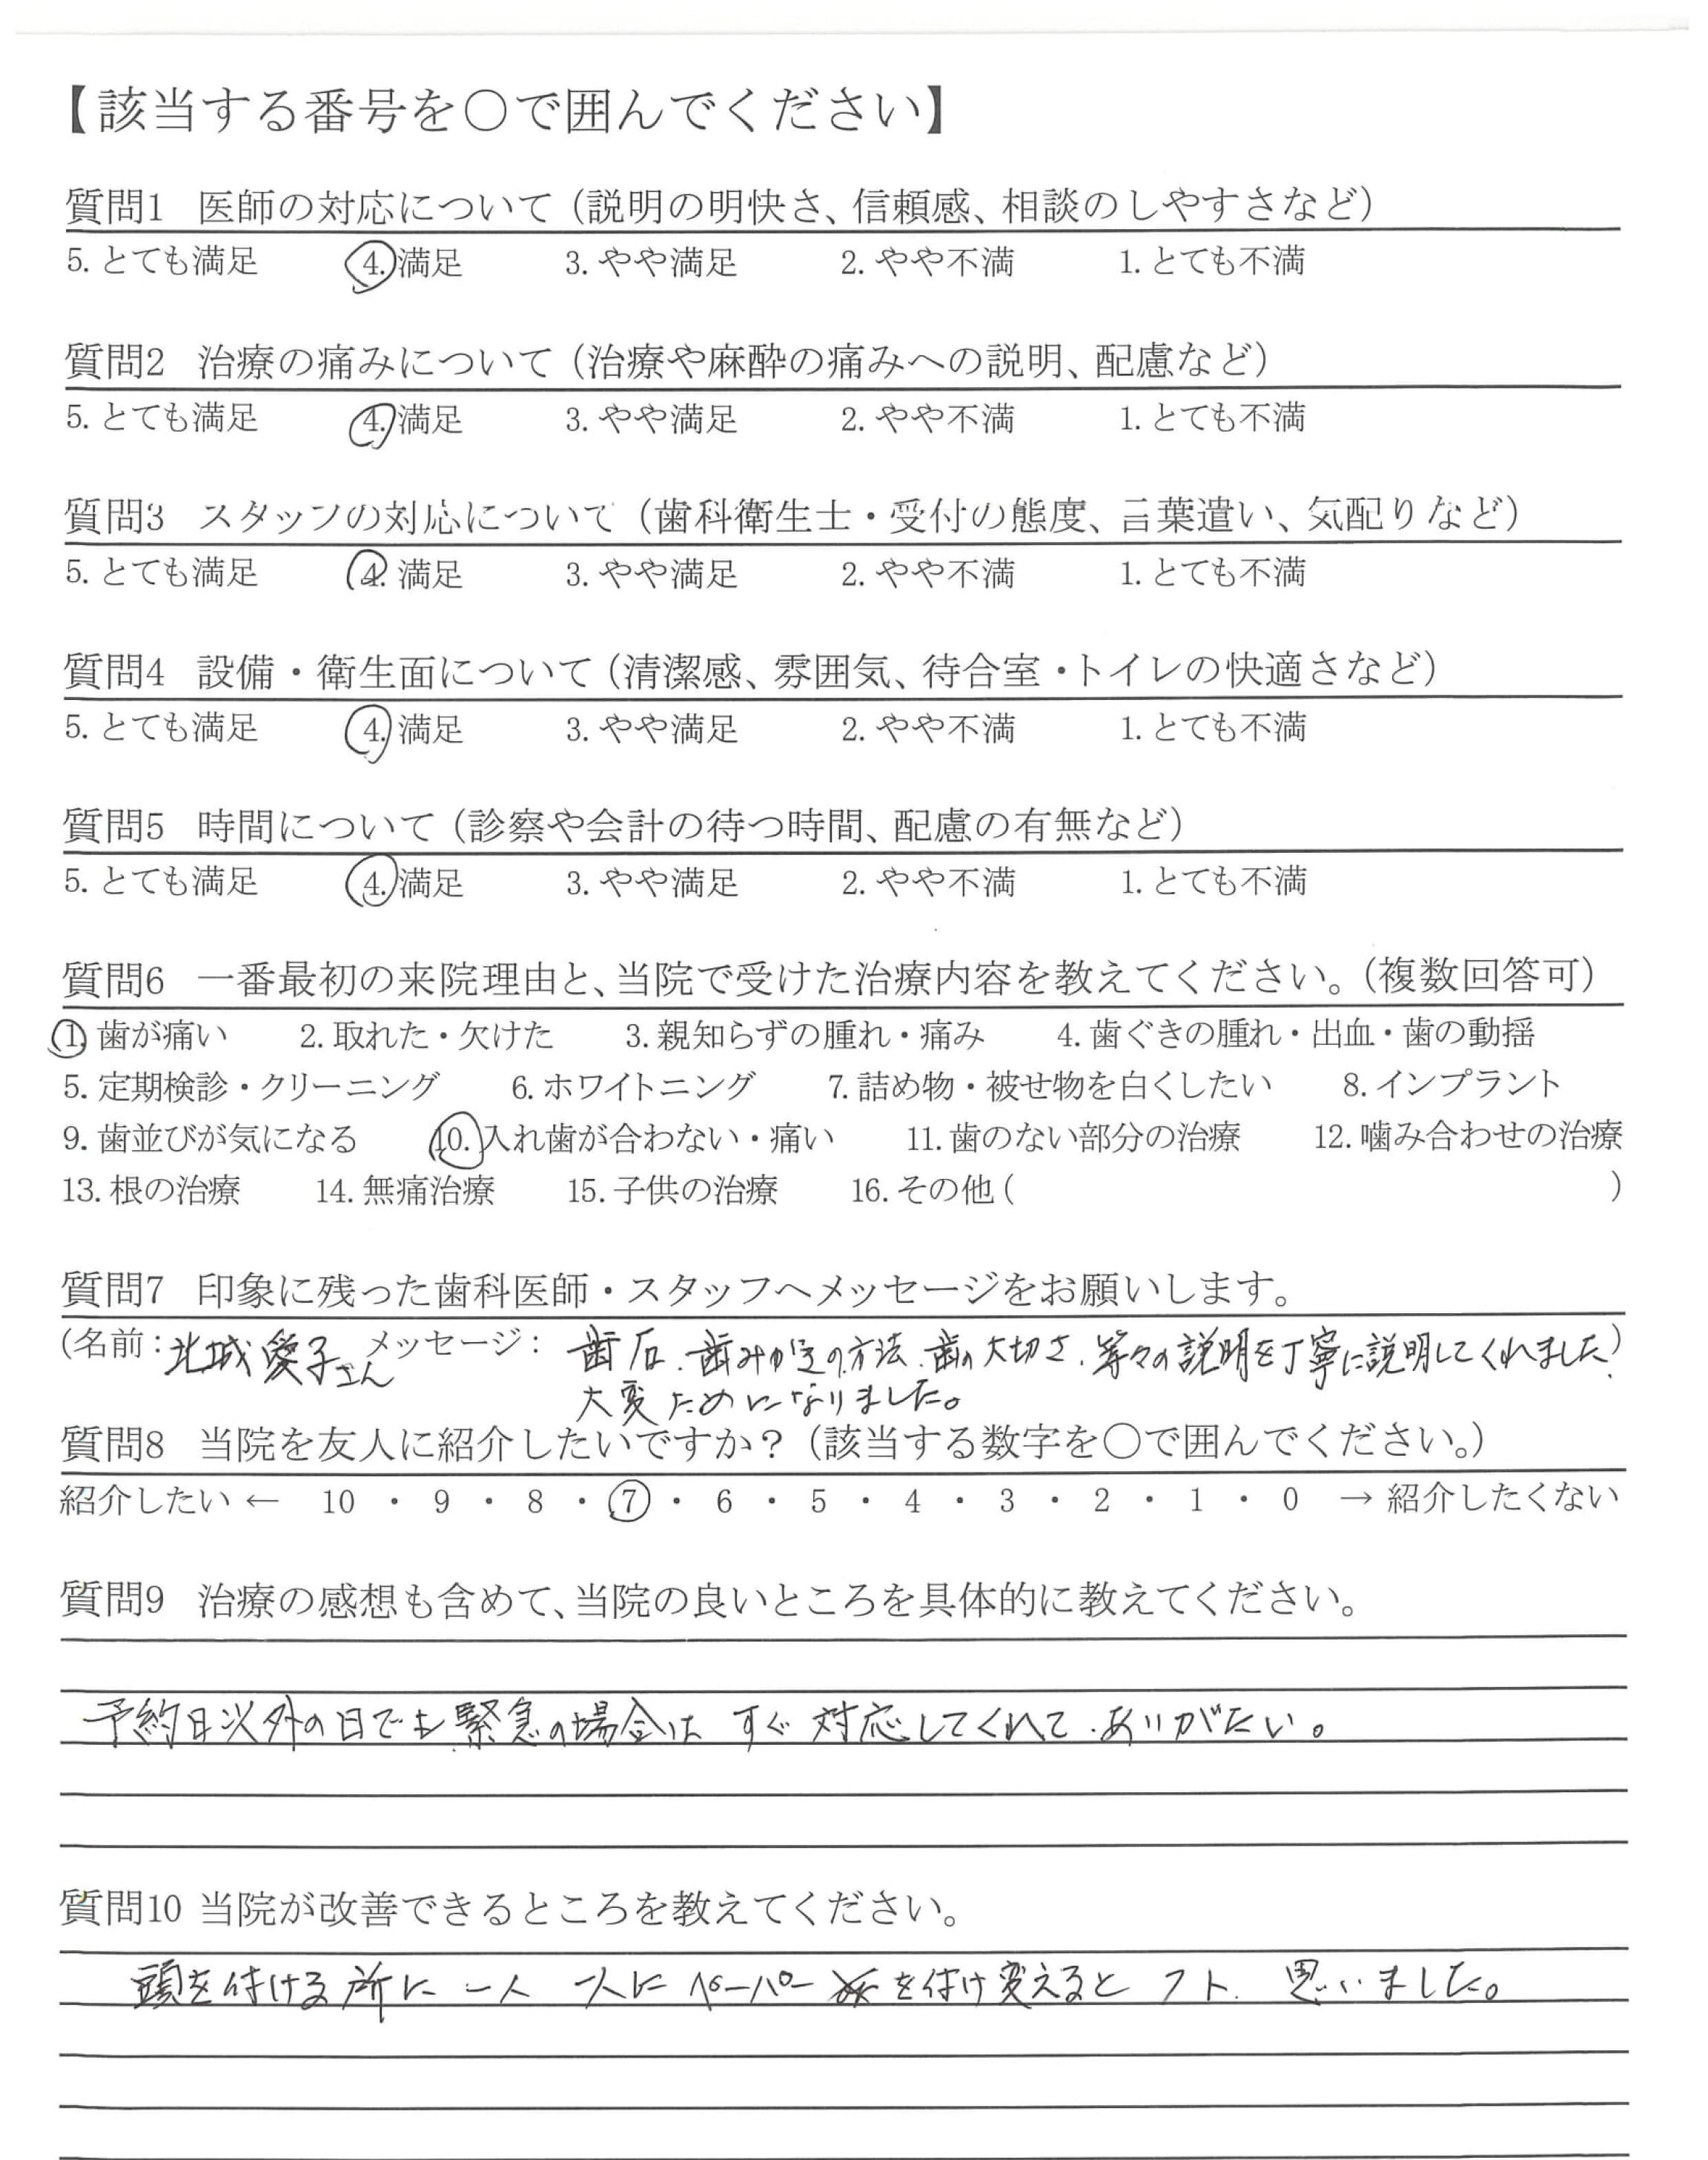 【該当する番号を〇で囲んでください】
質問1 医師の対応について（説明の明快さ、信頼感、相談のしやすさなど）
5. とても満足 4. 満足 3. やや満足 2. やや不満 1. とても不満
質問2 治療の痛みについて（治療や麻酔の痛みへの説明、配慮など）
5. とても満足 4. 満足 3. やや満足 2. やや不満 1. とても不満
質問3 スタッフの対応について（歯科衛生士・受付の態度、言葉遣い、気配りなど）
5. とても満足 4. 満足 3. やや満足 2. やや不満 1. とても不満
質問4 設備・衛生面について（清潔感、雰囲気、待合室・トイレの快適さなど）
5. とても満足 4. 満足 3. やや満足 2. やや不満 1. とても不満
質問5 時間について（診察や会計の待つ時間、配慮の有無など）
5. とても満足 4. 満足 3. やや満足 2. やや不満 1. とても不満
質問6 一番最初の来院理由と、当院で受けた治療内容を教えてください。（複数回答可）
1. 歯が痛い 2. 取れた・欠けた 3. 親知らずの腫れ・痛み 4. 歯ぐきの腫れ・出血・歯の動揺
5. 定期検診・クリーニング 6. ホワイトニング 7. 詰め物・被せ物を白くしたい 8. インプラント
9. 歯並びが気になる 10. 入れ歯が合わない・痛い 11. 歯のない部分の治療 12. 噛み合わせの治療
13. 根の治療 14. 無痛治療 15. 子供の治療 16. その他（ ）
質問7 印象に残った歯科医師・スタッフへメッセージをお願いします。
（名前：北城愛子さん メッセージ： 歯石、歯みがきの方法、歯の大切さ、等々の説明を丁寧に説明してくれました）
大変ためになりました。
質問8 当院を友人に紹介したいですか？（該当する数字を〇で囲んでください。）
紹介したい ← 10 ・ 9 ・ 8 ・ 7 ・ 6 ・ 5 ・ 4 ・ 3 ・ 2 ・ 1 ・ 0 → 紹介したくない
質問9 治療の感想も含めて、当院の良いところを具体的に教えてください。
予約日以外の日でも緊急の場合は すぐ対応してくれて、ありがたい。
質問10 当院が改善できるところを教えてください。
頭を付ける所に 一人 一人に ペーパー を付け変えると フト 思いました。